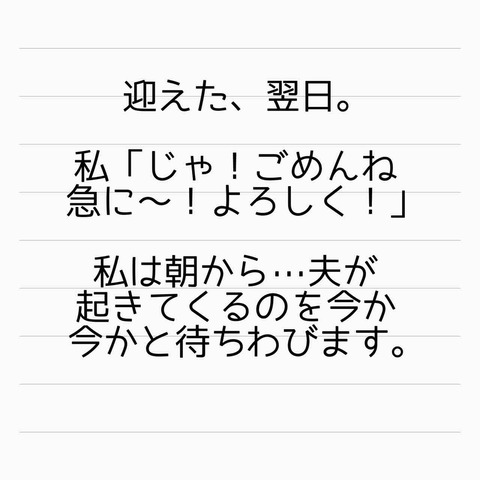 迎えた、翌日。
私「じゃ！ごめんね
急に〜！よろしく！」
私は朝から…夫が
起きてくるのを今か
今かと待ちわびます。